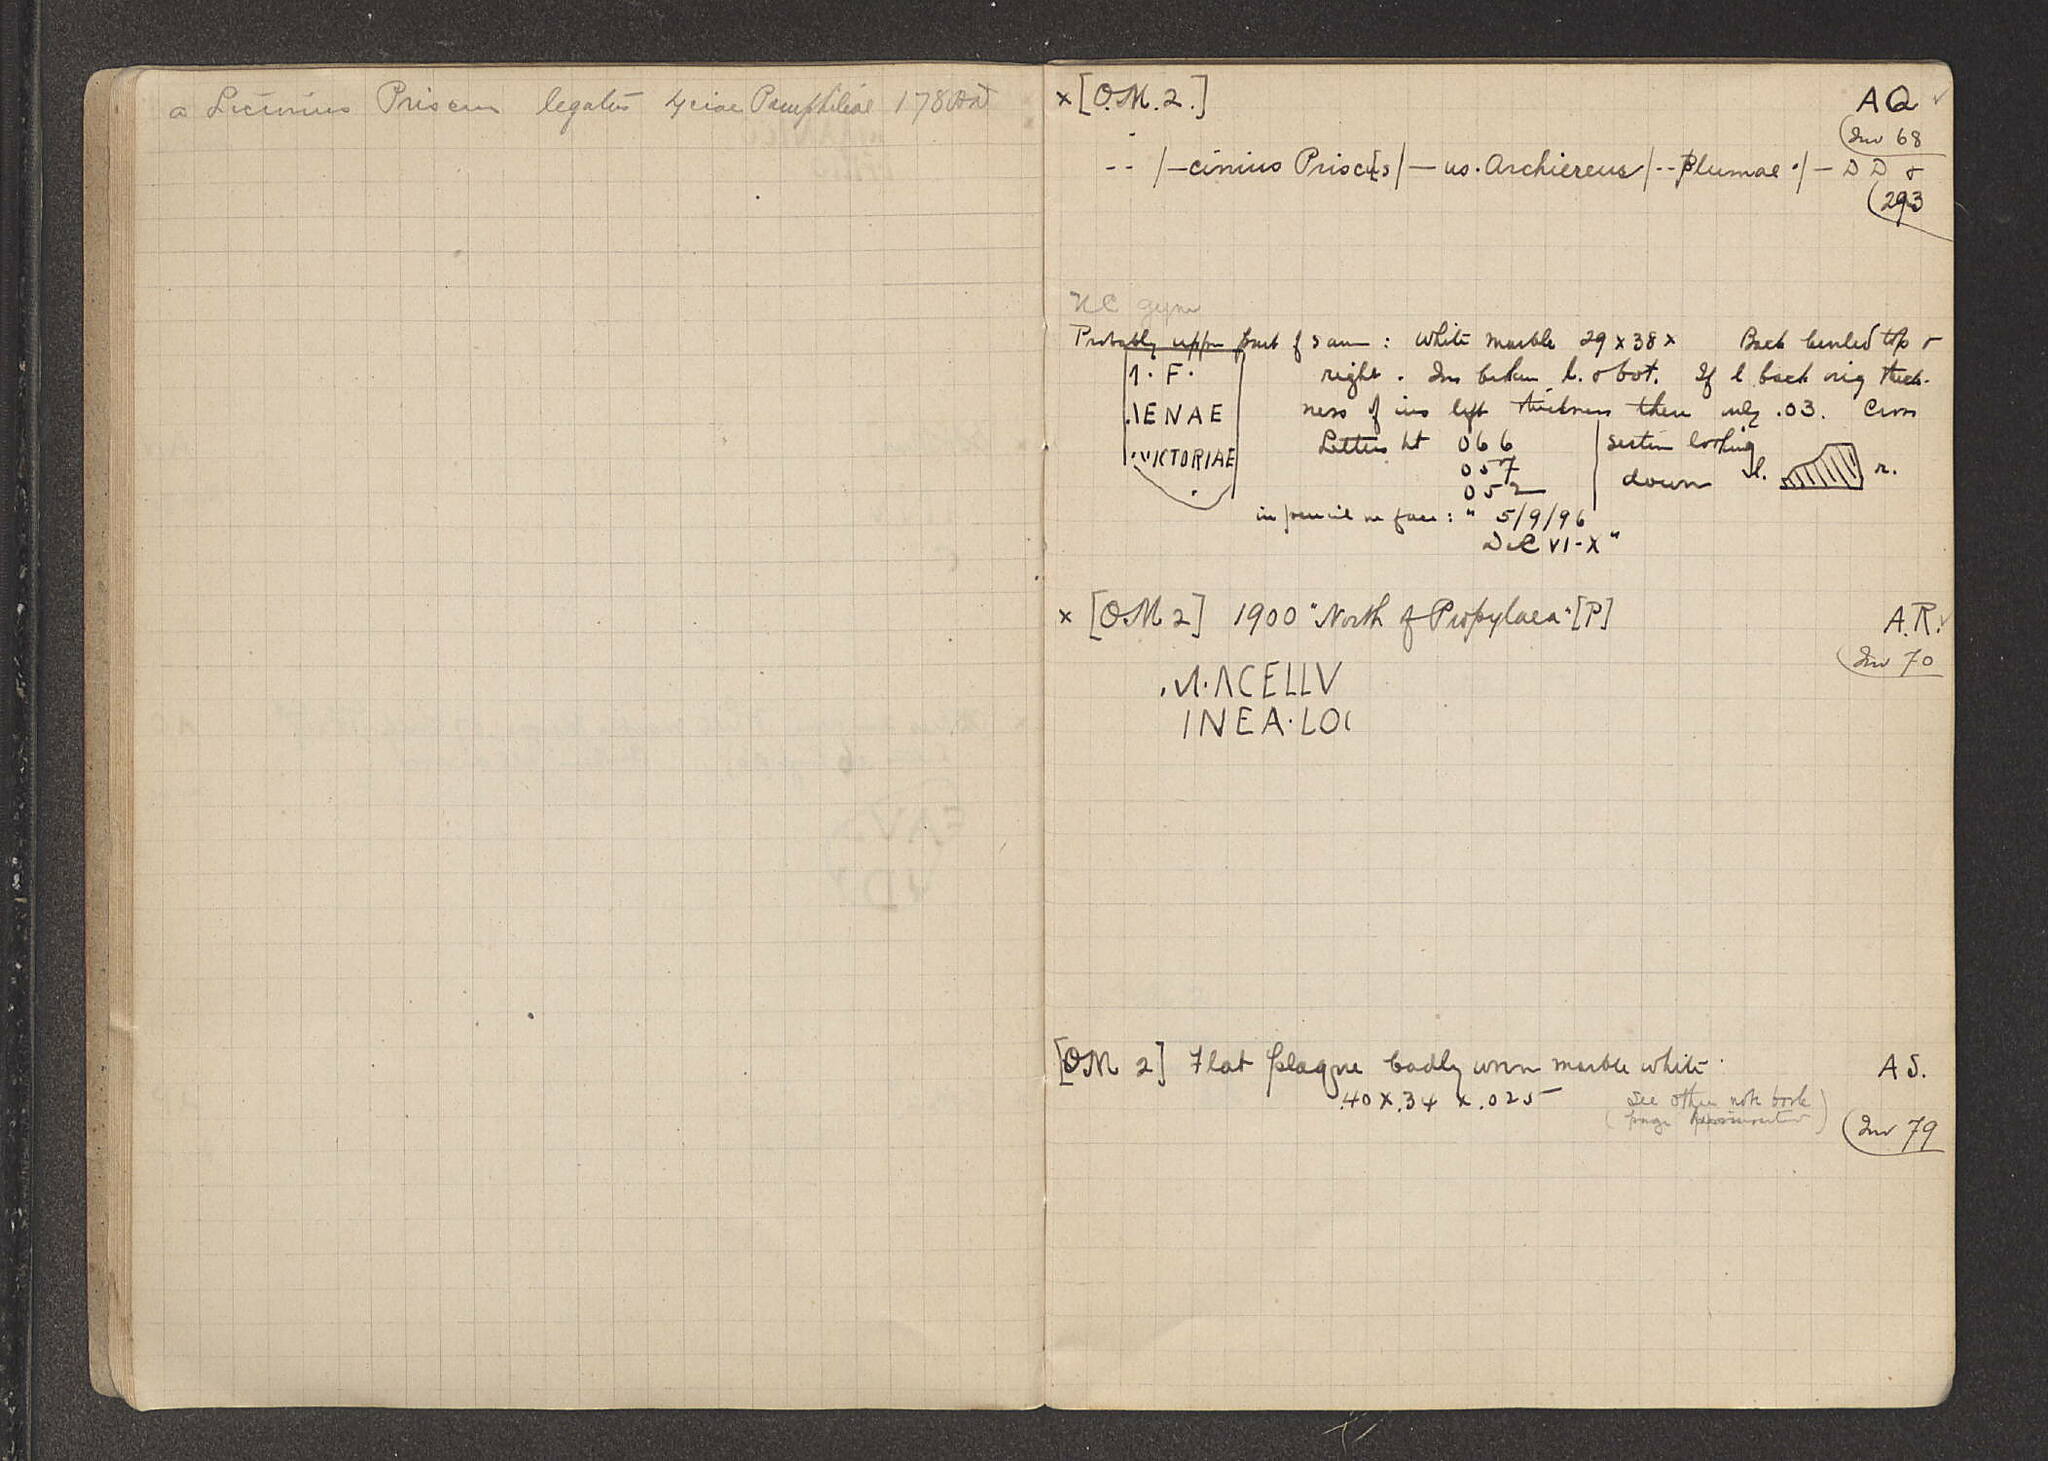 a Licinius Priscus legatus Lyciae Pamphiliae 178
× [O.M.2.] AQ
Inv 68
-- /—cinius Prisc[us/— us. Archiereus/--plumae ·/— D D &
293
NC gym
Probably upper part of same : white marble 29 × 38 × Back beveled top &
right. Ins broken l. & bot. If l back orig thick-
ness of ins left thickness then only .03. Cross
Letters ht 066 section looking
057 down l. r.
052
Ꞁ· F·
.IENAE
VICTORIAE
in pencil on face : " 5/9/96
Dec VI-X "
× [OM 2] 1900 "North of Propylaea" [P] A.R.
Inv 70
.M·ACELLV
INEA·LO(
[OM 2] Flat plaque badly worn marble white. A S.
.40 ×.34 × .025
(see other note book
page)
Inv 79